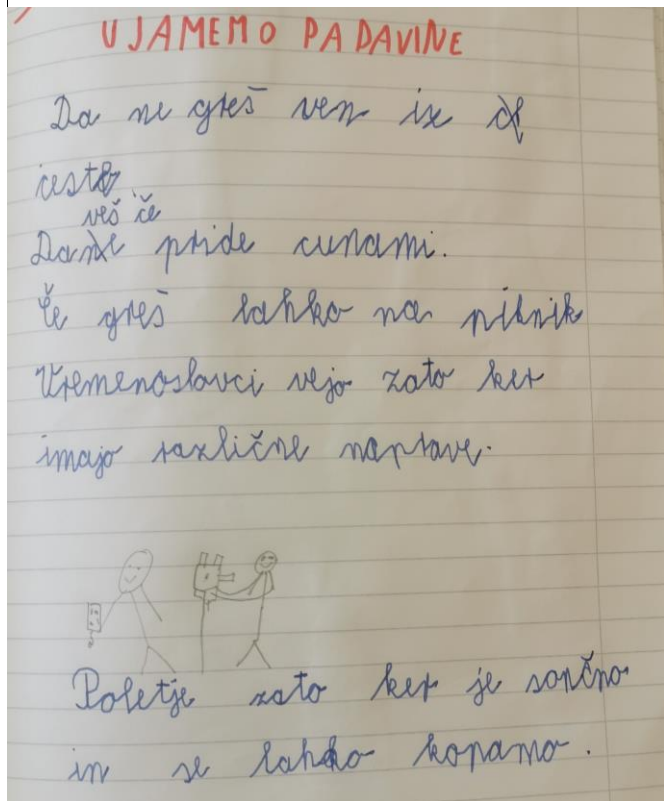 UJAMEMO PADAVINE
Da ne greš ven iz
cesto
veš če
Da pride cunami.
Če greš lahko na piknik
Vremenoslovci vejo zato ker
imajo različne naprave.
Poletje zato ker je sončno
in se lahko kopamo.